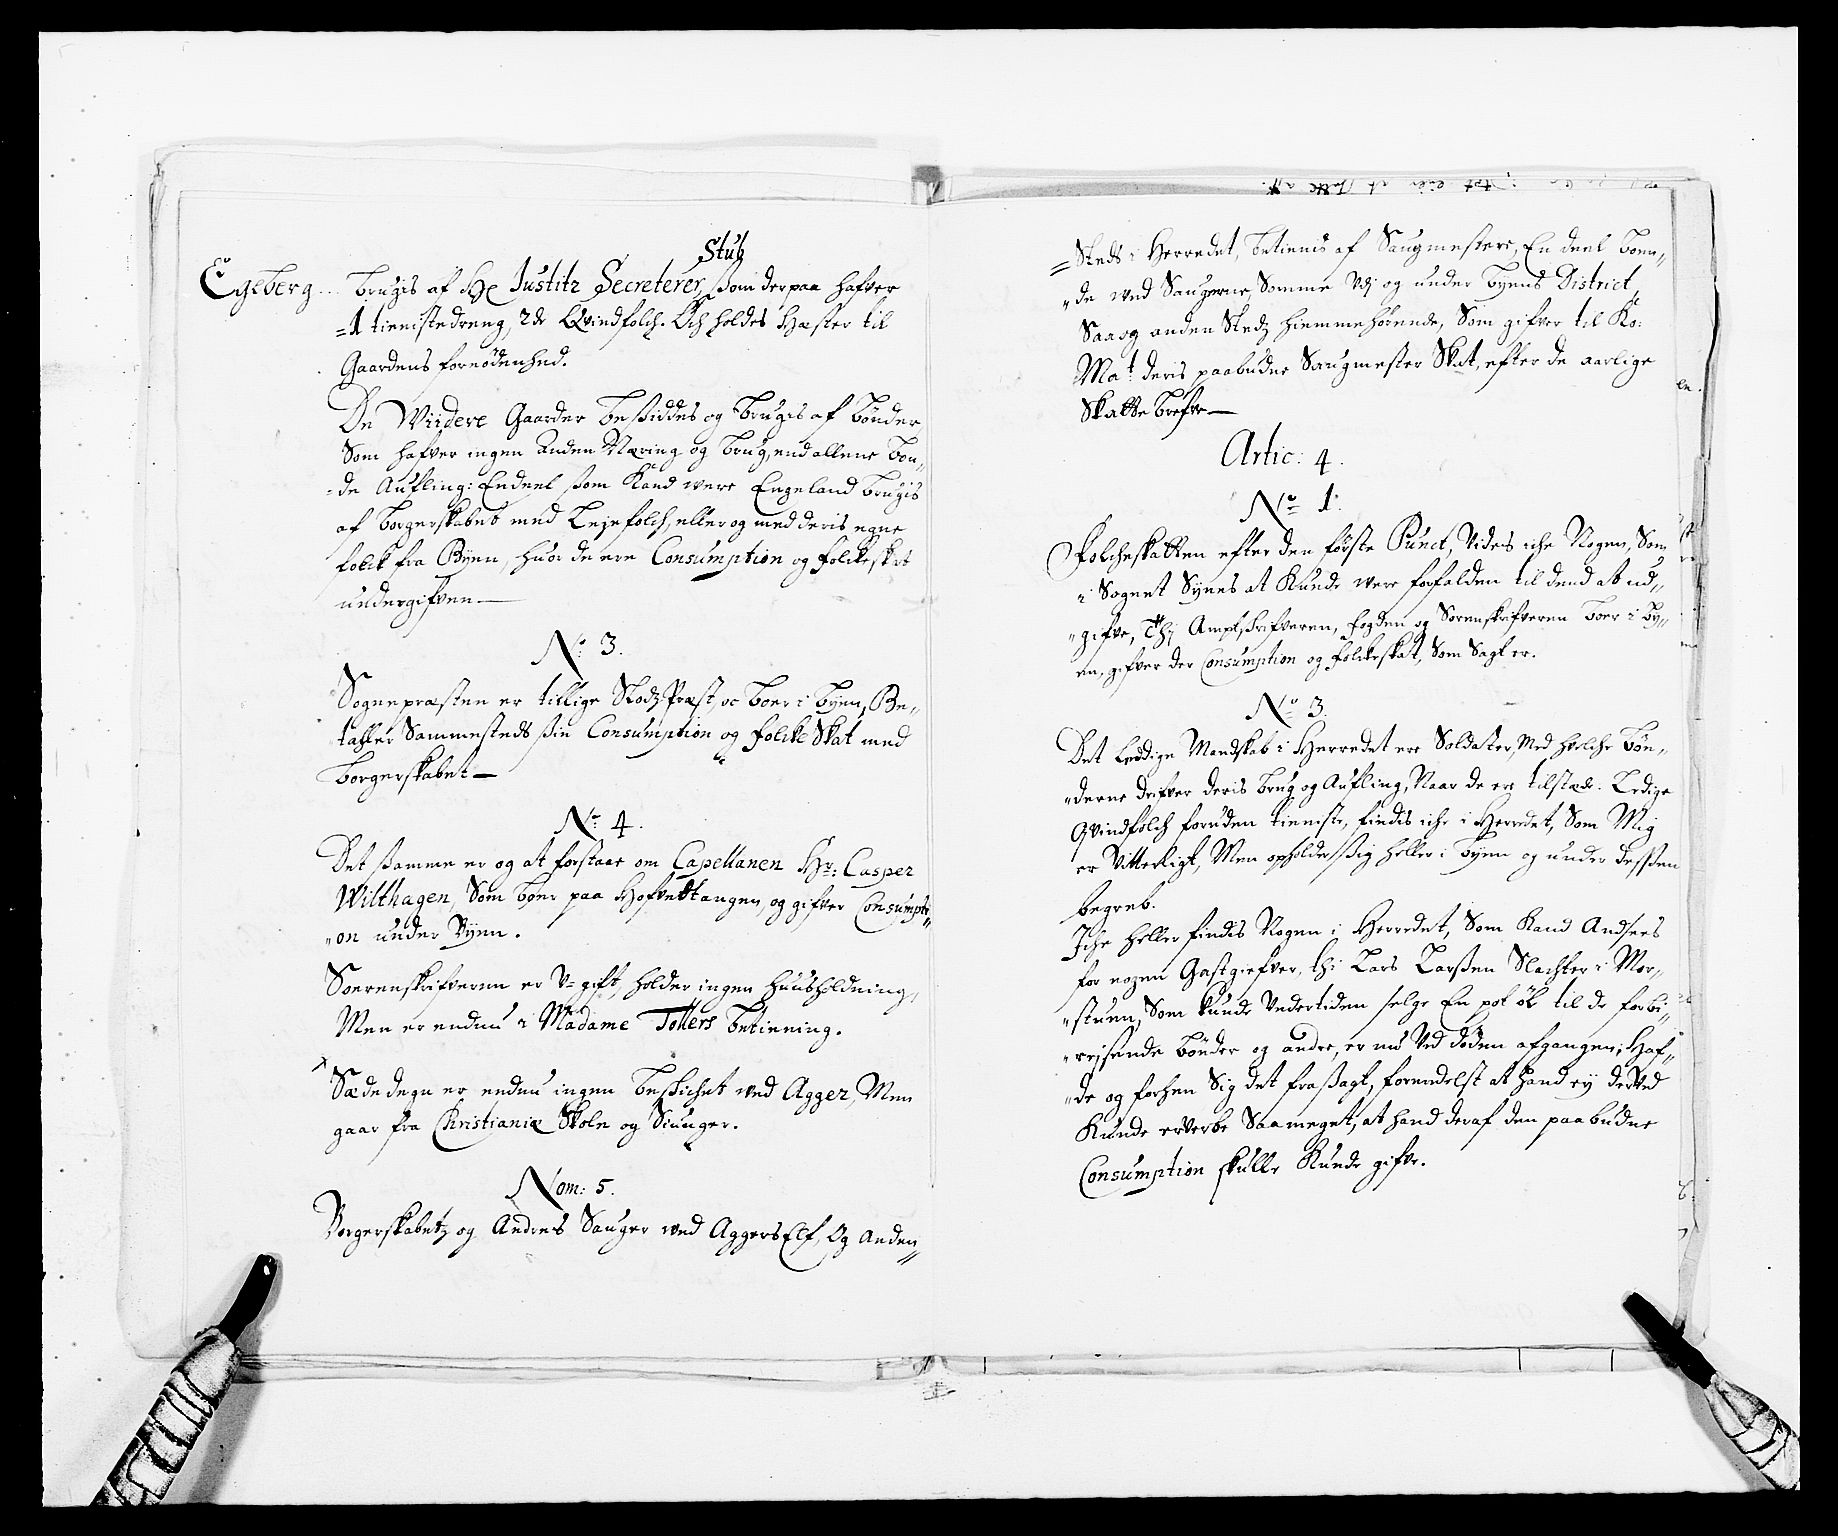 Stub
Egeberg... brugis af Hr Justitz Secreterer, ßom derpaa hafver
=1 tienistedreng, 2de Qvindfolch. Och holdes Hæster til
Gaardens fornödenhed.
De Wiidere Gaarder beßiddes og brugis af bönder,
Som hafver ingen anden Næring og brug, end allene bon„
„de Aufling: Endeel ßom Kand were Engeland brugis
af borgerskabet med Lejefolch, eller og med deris egne
folck fra Byen, huor de ere Consumption og folckeskat
undergifven—
No 3.
Sognepræsten er tillige Slodz Præst, oc boer i byen, Be„
taller Sammesteds ßin Consumption og folcke Skat med
borgerskabet—
No 4.
Det ßamme er og at forstaae om Capellanen Hr: Casper
Wilthagen, Som boer paa Hofvettangen, og gifver Consumpti„
„on under Byen.
Soerenskrifveren er U=gift, holder ingen huusholdning,
Men er endnu i Madame Tollers betiening.
Sædedegn er endnu ingen beskichet ved Agger, Men
gaar fra Christianiæ Skole og Siunger.
Nom: 5.
Borgerskabetz og Andres Sauger ved Aggers Elf, Og Anden„
=Steds i Herredet, betienis af Saugmestere, En deel boen„
„de ved Saugerne, Somme Udj og under byens District,
Saa og anden Stedz hiemmehörende, Som gifver til Ko:
Mat: deris paabudne Saugmester Skat, efter de aarlige
Skatte brefve—
Artic: 4.
No 1.
Folcheskatten efter den förste Punct, Vides iche Nogen, Som
i Sognet Synes at Kunde were forfalden til dend at ud„
„gifve, Thj Amptskrifveren, fogden og Sorenskrifveren boer i by„
en, gifver der Consumption og folckeskat, Som Sagt er.
No 3.
Det Leddige Mandskab i Herredet ere Soldater, Med hvelche bön„
„derne drifver deris brug og Aufling, Naar de er tilstæde: Ledige
Qvindfolch foruden tieniste, findis iche i Herredet, Som Mig
er Vitterligt, Men opholder ßig heller i byen og under desßen
begreb.
Iche heller findis Nogen i Herredet, Som Kand Andsees
for nogen Gastgiefver, thi Lars Larßen Slachter i Mor„
„stuen, Som kunde Undertiden selge En pot öl til de forbi„
„rejsende bönder og andre, er nu Ved döden afgangen; Haf„
„de og forhen Sig det fraßagt, formedelst at Hand ej derved
Kunde erverbe Saameget, at hand deraf den paabudne
Consumption skulle Kunde gifve.